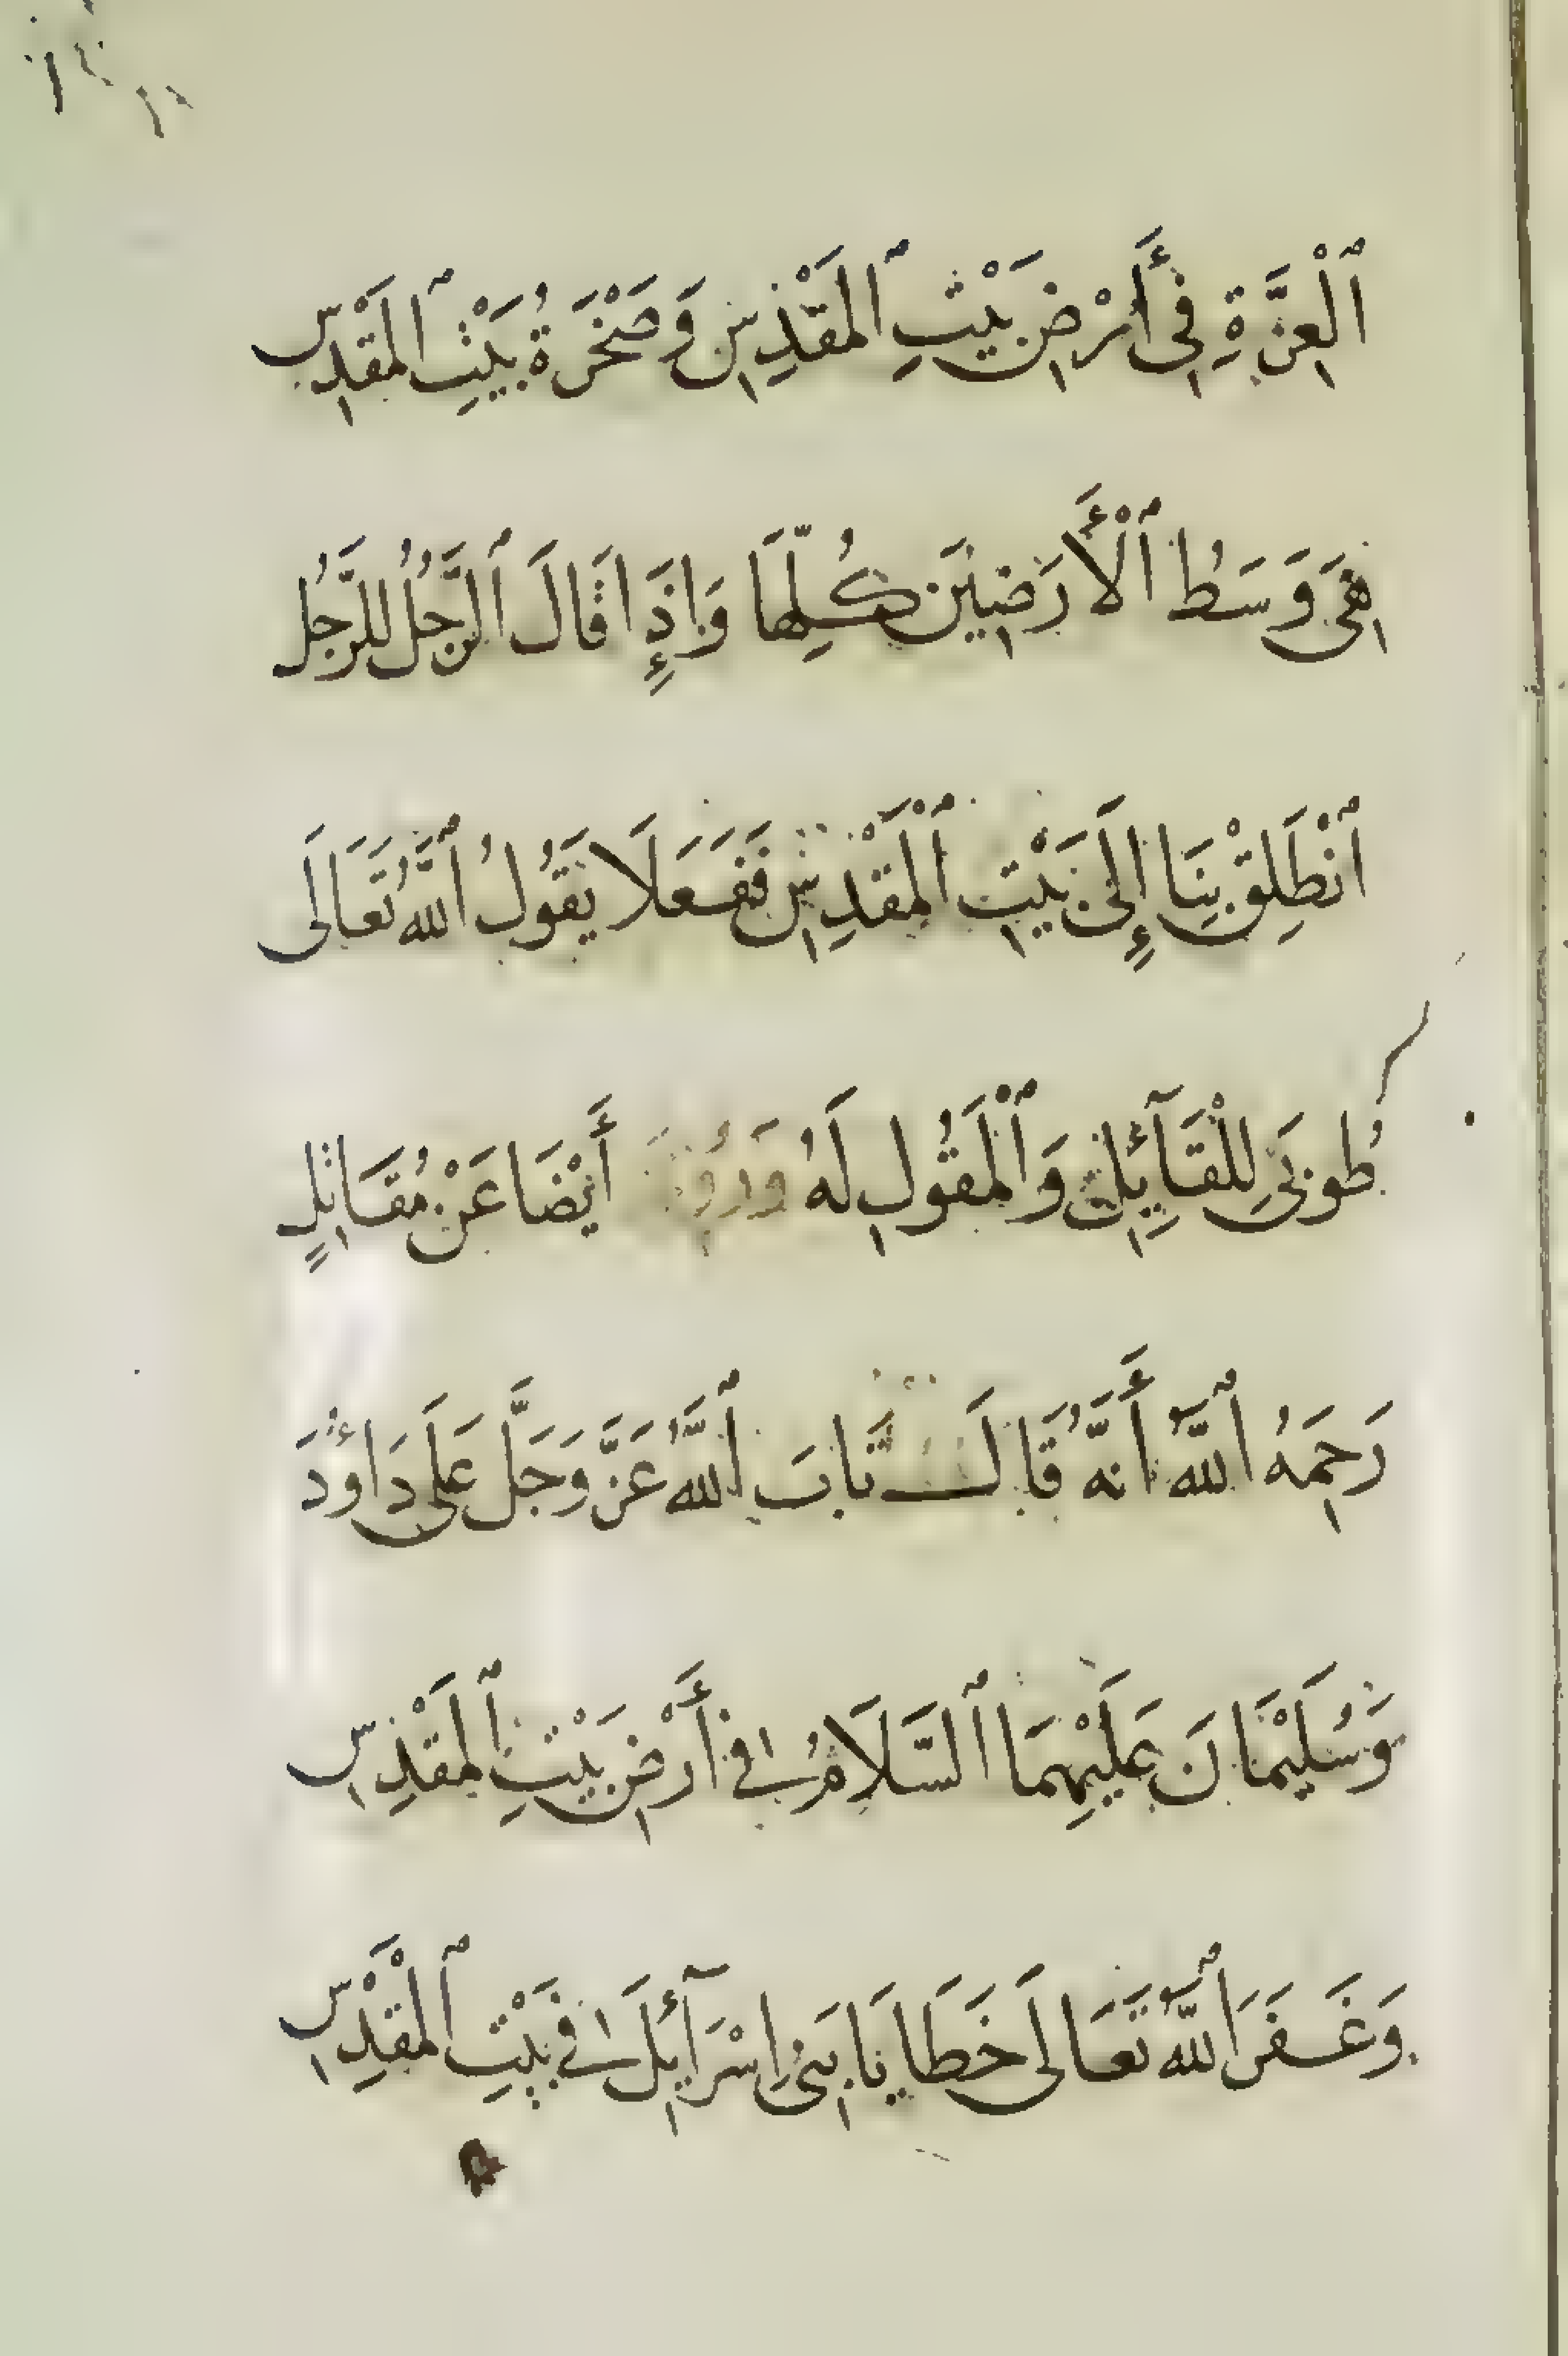 ٱلْعِزَّةِ فِي أَرْضِ بَيْتِ ٱلمَقْدِسِ وَصَخْرَةُ بَيْتِ ٱلمَقْدِسِ
هِيَ وَسَطُ ٱلْأَرَضِيْنَ كُلِّهَا وَإِذَا قَالَ ٱلرَّجُلُ لِلرَّجُلِ
ٱنْطَلِقْ بِنَا إِلَى بَيْتِ ٱلْمَقْدِسِ فَفَعَلَا يَقُولُ ٱللَّهُ تَعَالَى
طُوبَى لِلْقَآئِلِ وَٱلْمَقُولِ لَهُ وَرُوِيَ أَيْضَا عَنْ مُقَاتِلٍ
رَحِمَهُ ٱللَّهُ أَنَّهُ قَالَ تَابَ ٱللَّهُ عَزَّ وَجَلَّ عَلَى دَاوُدَ
وَسُلَيْمَانَ عَلَيْهِمَا ٱلسَّلَامُ فِي أَرْضِ بَيْتِ ٱلمَقْدِسِ
وَغَفَرَ ٱللَّهُ تَعَالَى خَطَايَا بَنِي إِسْرَآئِلَ فِي بَيْتِ ٱلمَقْدِسِ